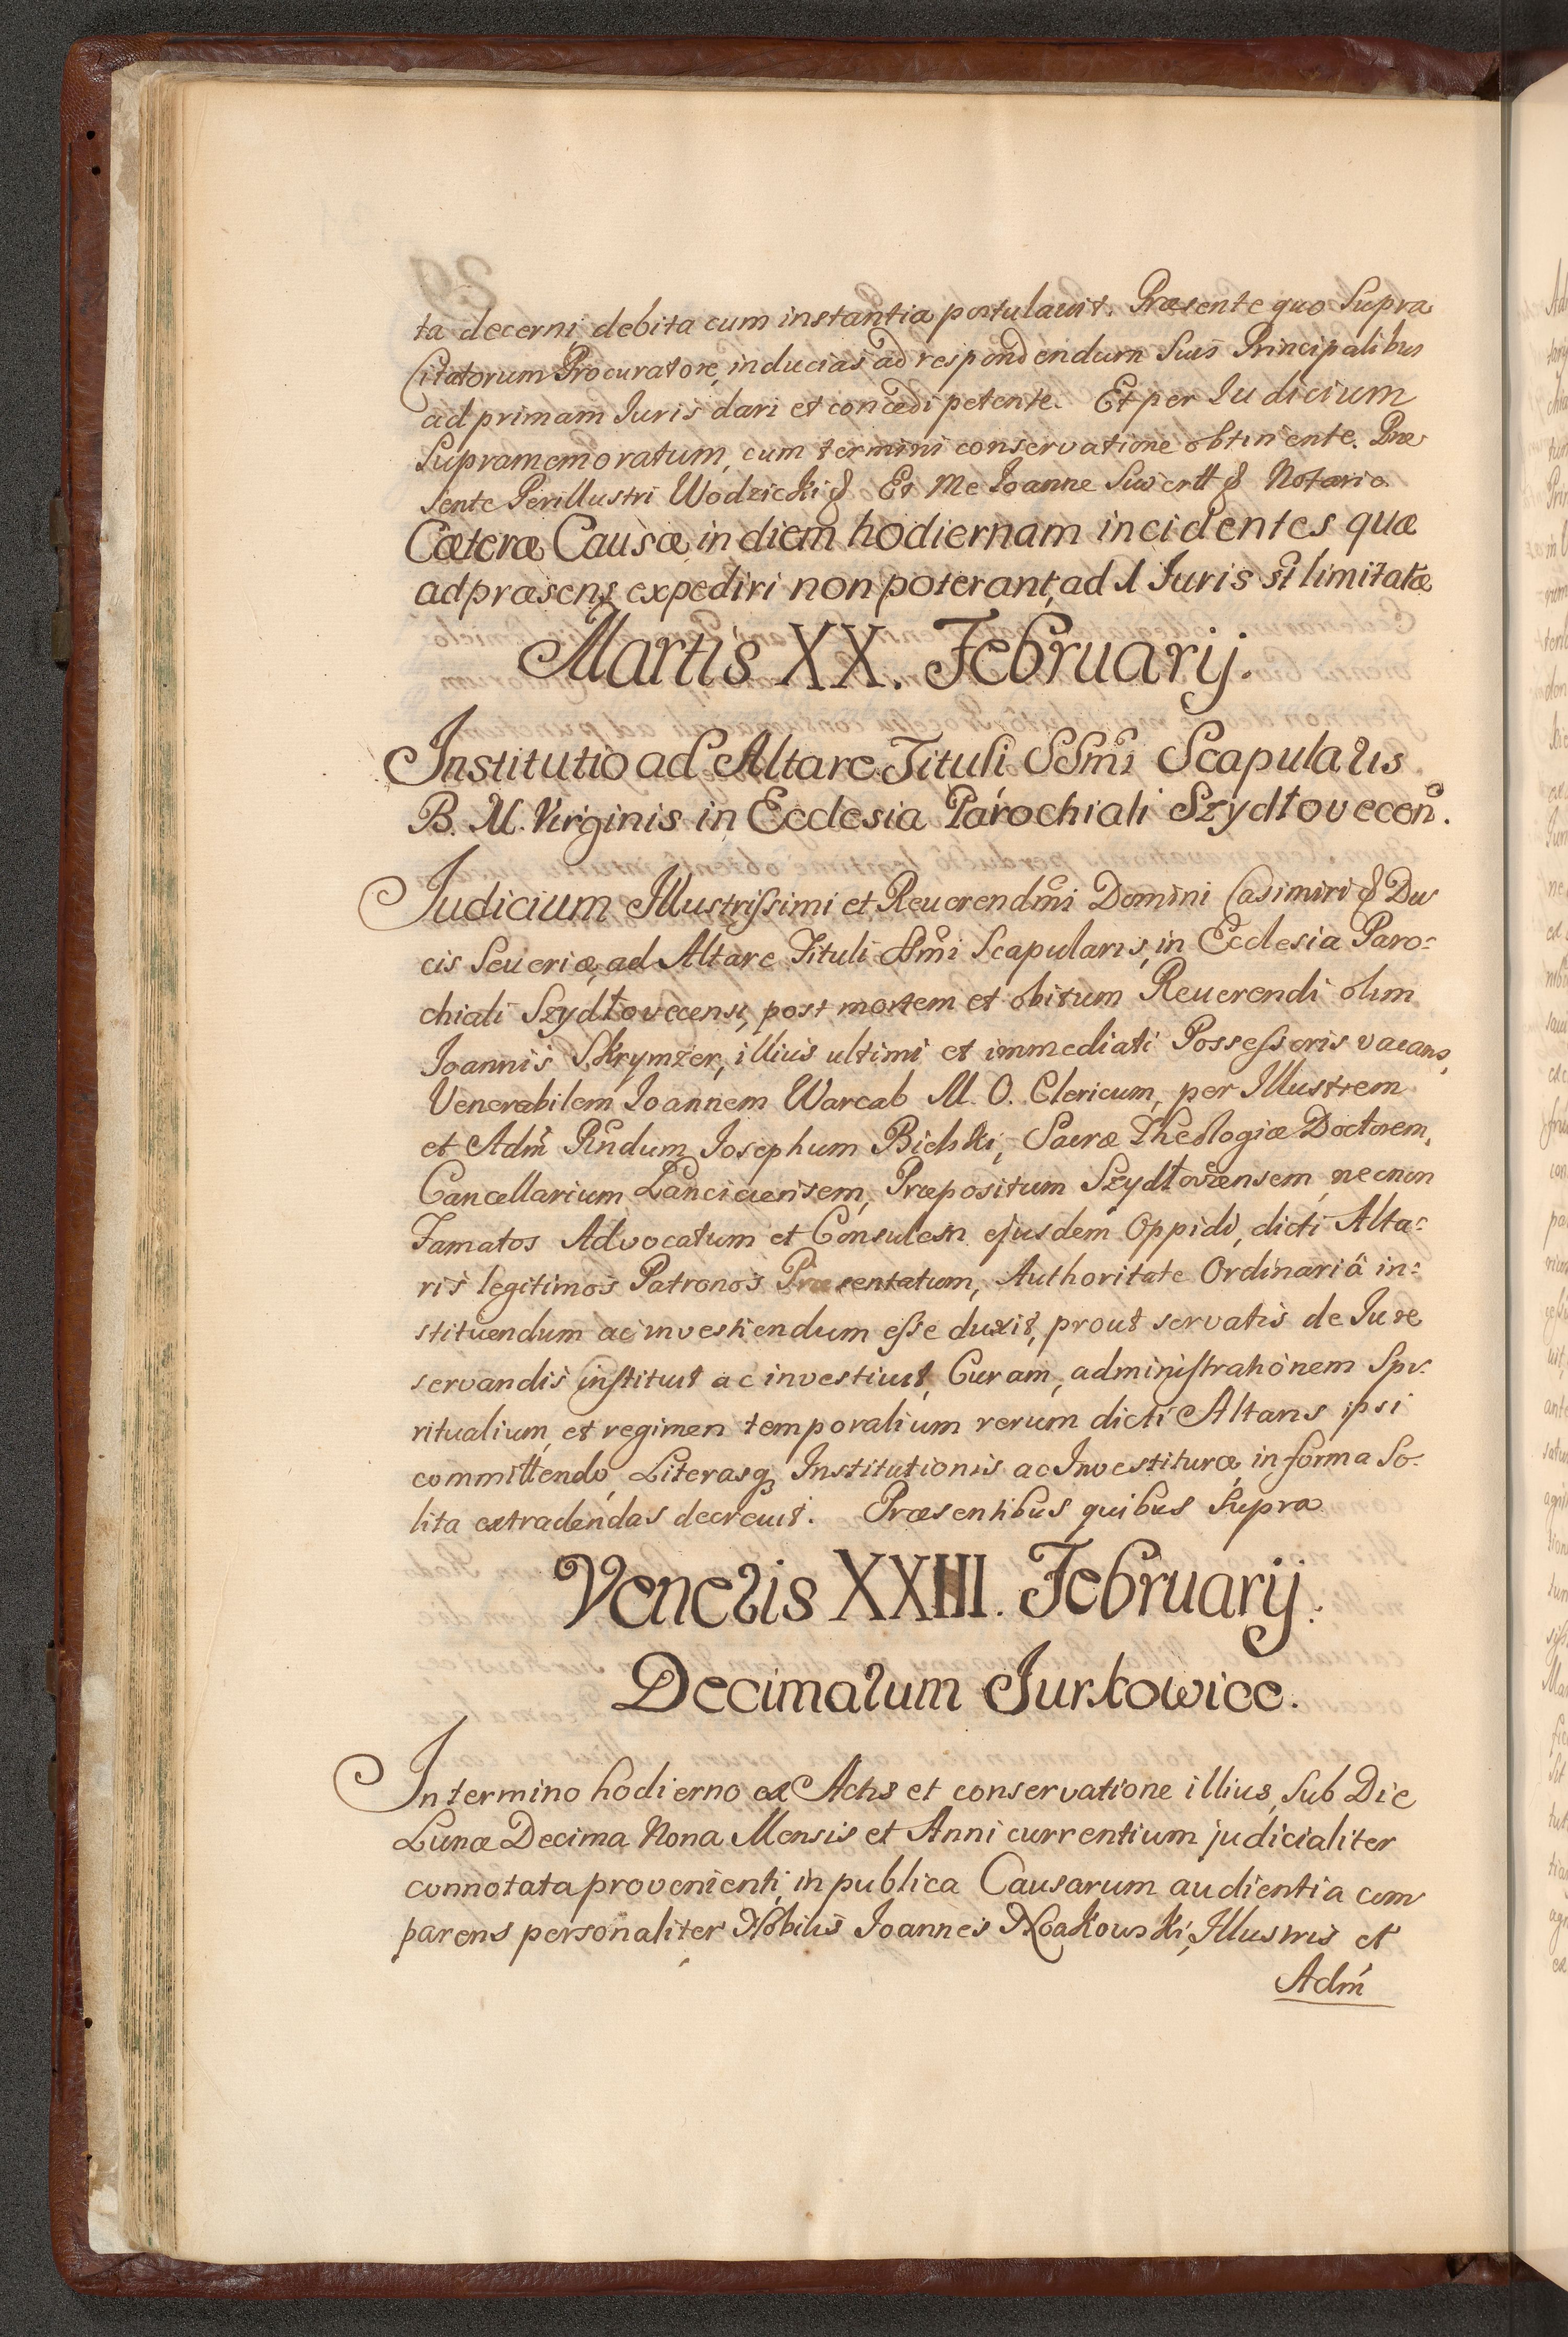 ta decerni debita cum instantia postulavit. Præsente quo Supra
Citatorum Procuratore, inducias ad respondendum Suis Principalibus
ad primam Iuris dari et concedi petente. Et per Iudicium
Supramemoratum, cum termini conservatione obtinente. Præ
sente Perillustri Wodzicki & Et Me Ioanne Suiertt & Notario.
Cæteræ Causæ in diem hodiernam incidentes quæ
ad præsens expediri non poterant, ad 1 Iuris st limitatæ
Martis XX. Februarij.
Institutio ad Altare Tituli SSmi Scapularis
B. M. Virginis in Ecclesia Parochiali Szydłovecen.
Iudicium Illustrissimi et Reverendmi Domini Casimiri & Du
cis Severiæ, ad Altare Tituli SSmi Scapularis, in Ecclesia Paro:
chiali Szydłovecensi, post mortem et obitum Reverendi olim
Ioannis Skrymzer, illius ultimi et immediati Possessoris vacans,
Venerabilem Ioannem Warcab M. O. Clericum, per Illustrem
et Adm Rndum Iosephum Bielski, Sacræ Theologiæ Doctorem,
Cancellarium Lanciciensem, Præpositum Szydłoviensem, necnon
Famatos Advocatum et Consulem ejusdem Oppidi, dicti Alta:
ris legitimos Patronos Præsentatum, Authoritate Ordinariâ in:
stituendum ac investiendum esse duxit, prout servatis de Iure
servandis instituit ac investivit, Curam, administrationem Spi:
ritualium, et regimen temporalium rerum dicti Altaris ipsi
committendo, Literasq Institutionis ac Investituræ in forma So:
lita extradendas decrevit. Præsentibus quibus Supra
Veneris XXIII. Februarij.
Decimarum Iurkowice.
In termino hodierno ex Actis et conservatione illius, Sub Die
Lunæ Decima Nona Mensis et Anni currentium judicialiter
connotata provenienti, in publica Causarum audientia com
parens personaliter Nobilis Ioannes Noakowski, Illustris et
Adm